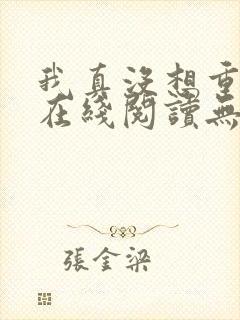 我真没想重
在綫閱讀無
張金梁